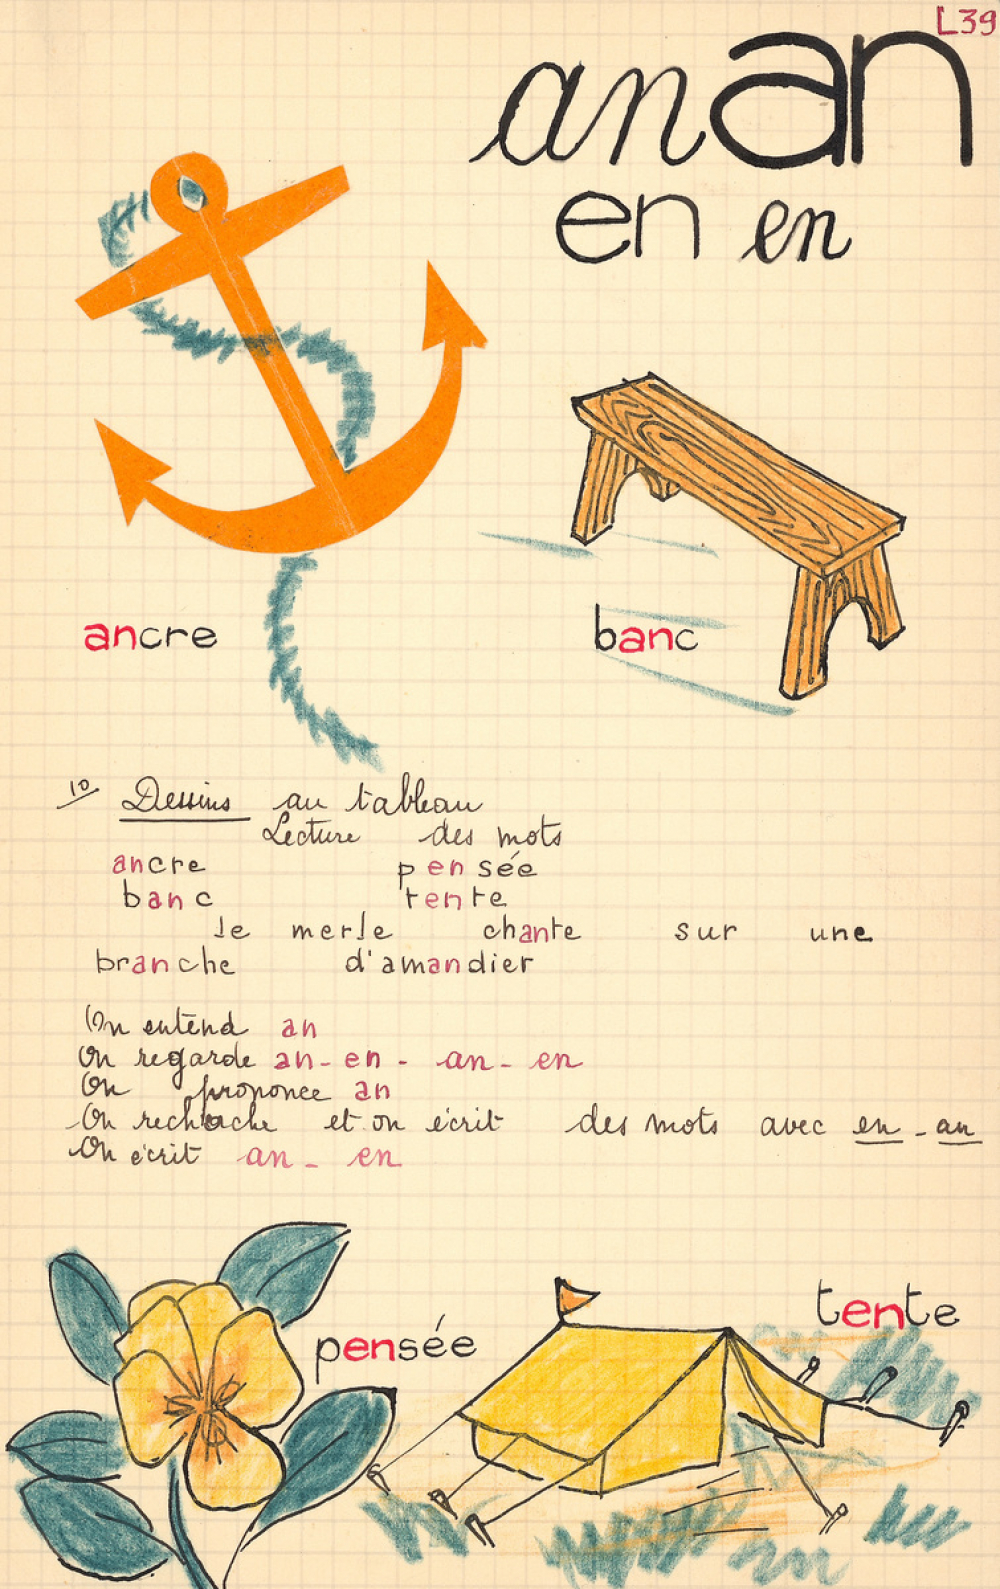 L39
an an
en en
ancre
banc
1º/ Dessins au tableau
Lecture des mots
ancre pensée
banc tente
le merle chante sur une
branche d'amandier
On entend an
On regarde an - en - an - en
On prononce an
On recherche et on écrit des mots avec en - an
On écrit an - en
pensée
tente